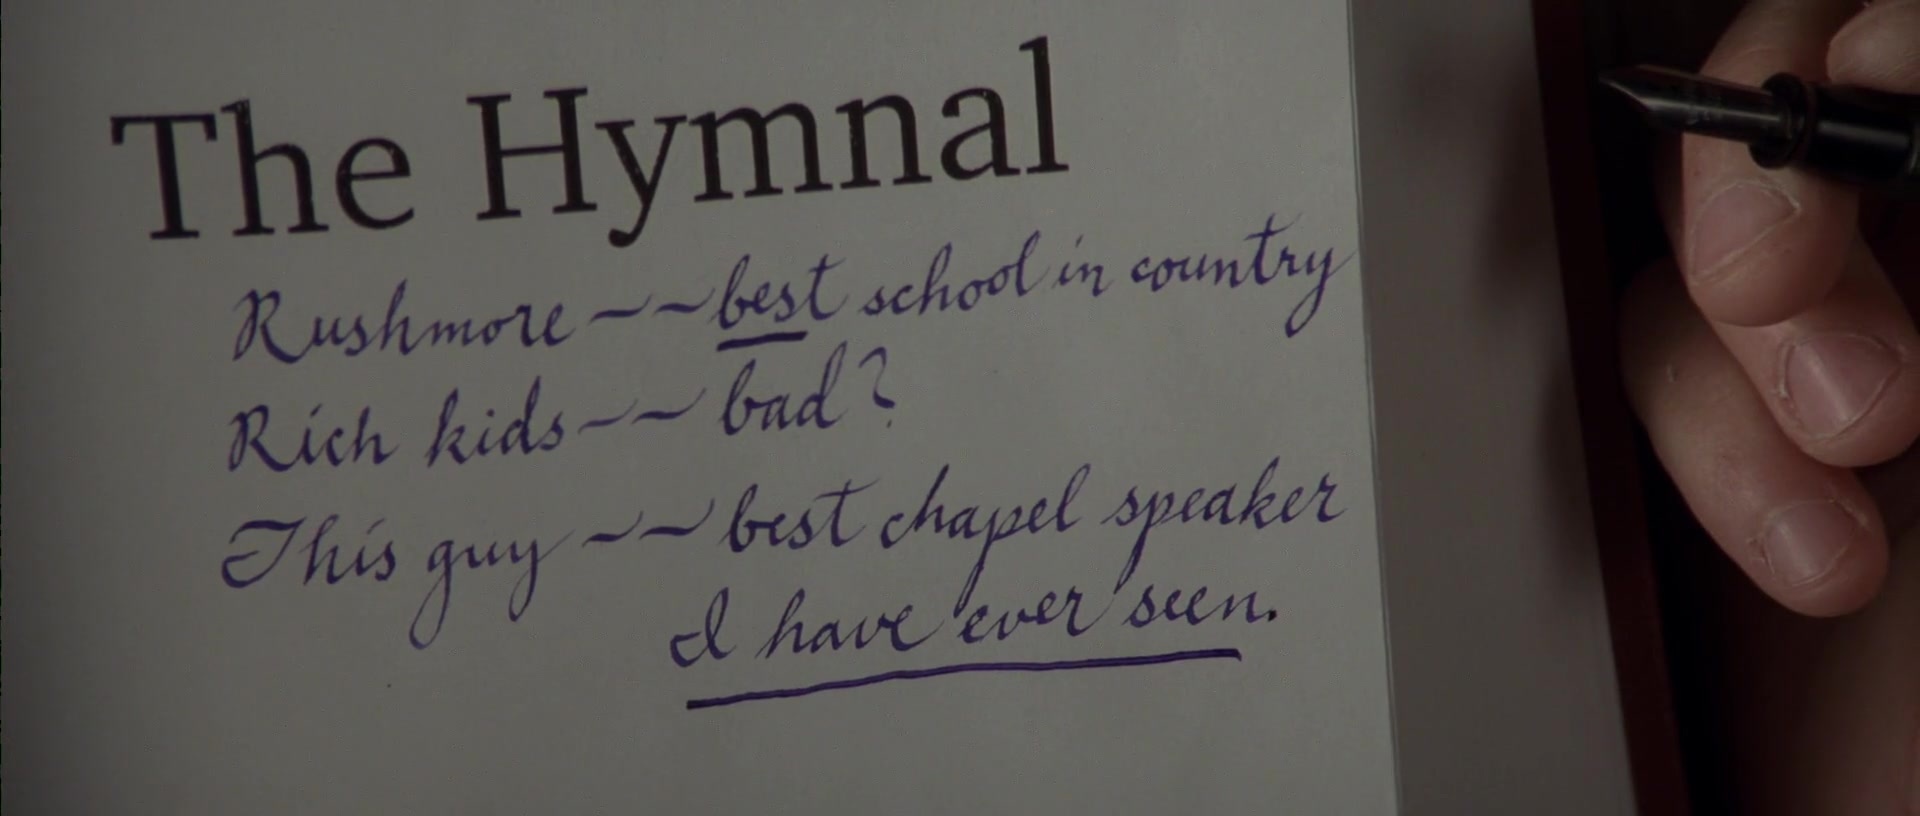 The Hymnal
Rushmore -- best school in country
Rich kids -- bad?
This guy -- best chapel speaker
I have ever seen.